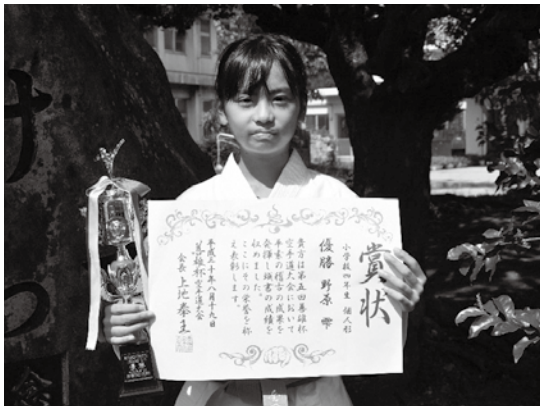 賞状
小学校四年生 個人形
優勝 野原 雫
貴方は第五回善雄杯
空手道大会において
平素の稽古の成果を
発揮し頭書の成績を
収めました。
ここにその栄誉を称
え表彰します。
平成三十年八月十九日
善雄杯空手道大会
会長 上地
け